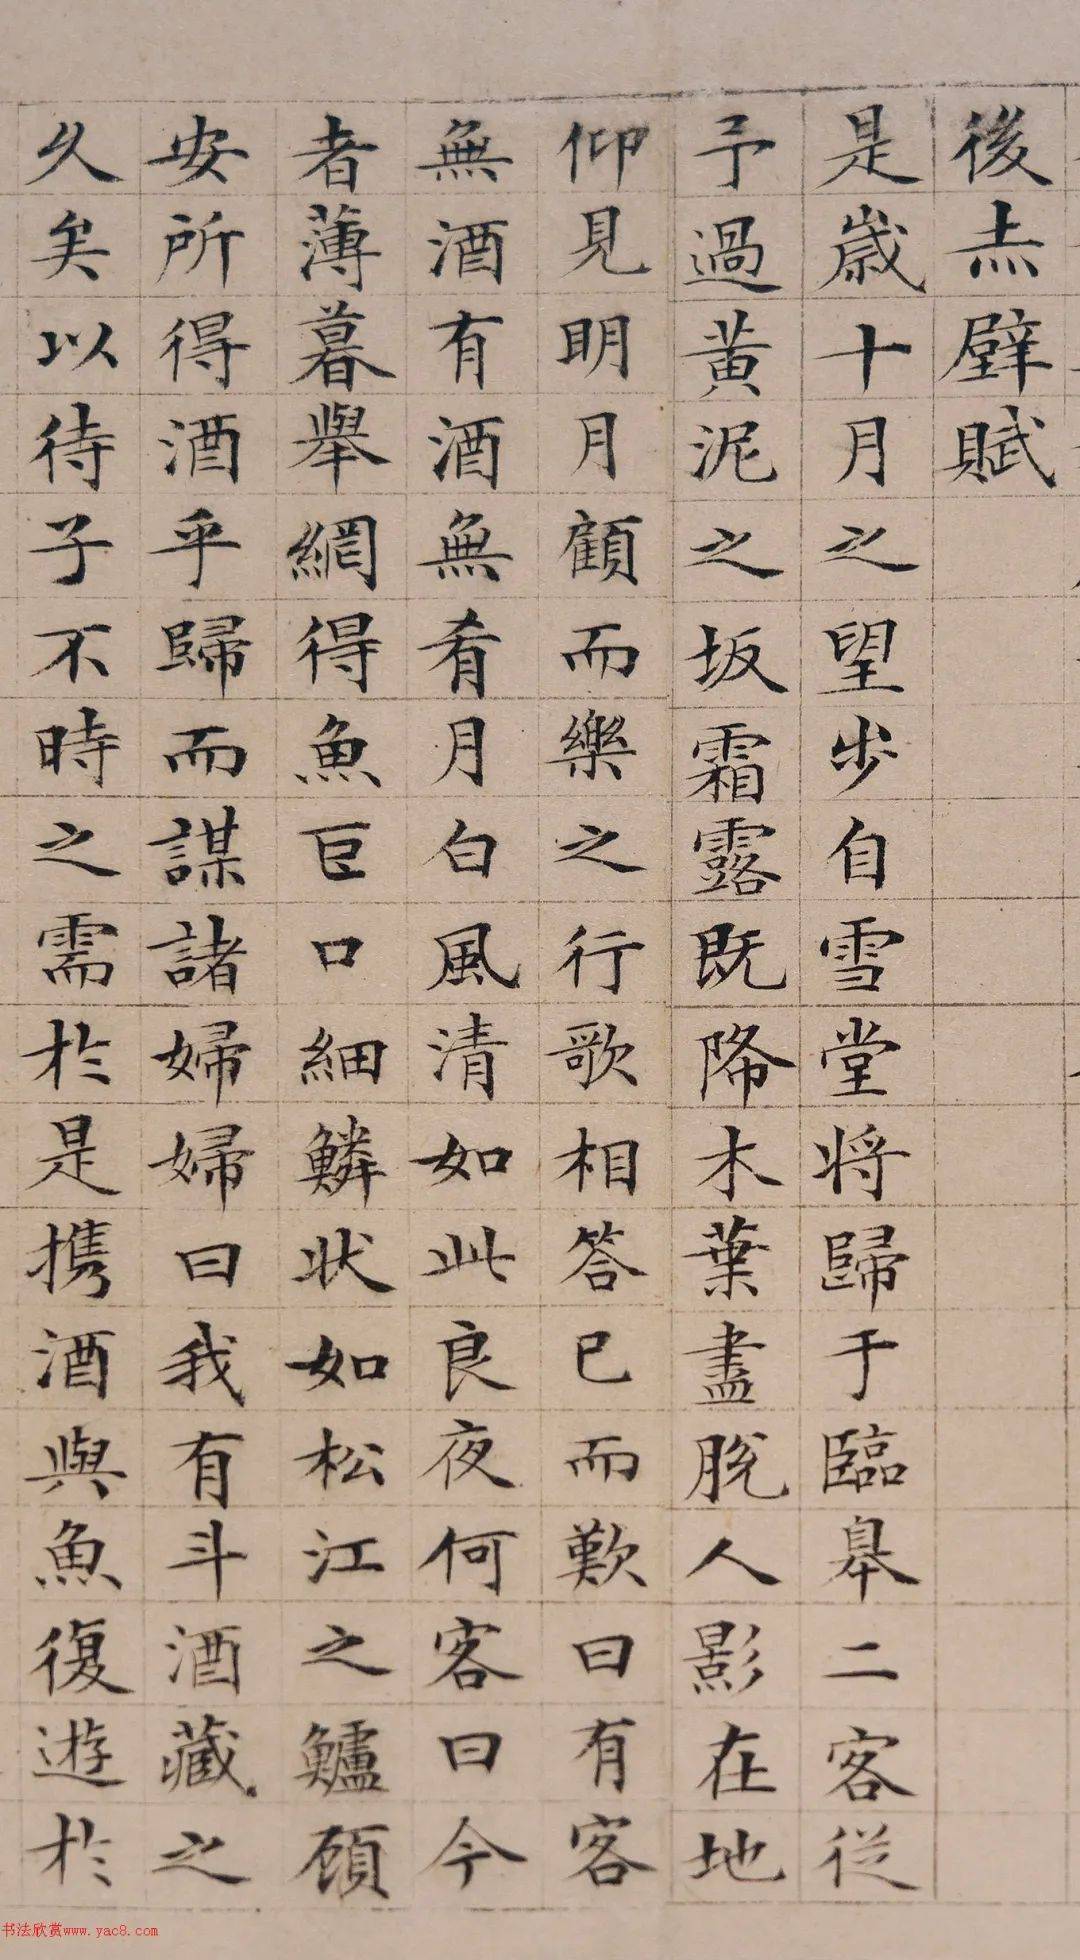 後赤壁賦
是歲十月之望步自雪堂将歸于臨皋二客從
予過黄泥之坂霜露既降木葉盡脫人影在地
仰見明月顧而樂之行歌相答已而歎曰有客
無酒有酒無肴月白風清如此良夜何客曰今
者薄暮舉網得魚巨口細鱗狀如松江之鱸顧
安所得酒乎歸而謀諸婦婦曰我有斗酒藏之
久矣以待子不時之需於是携酒與魚復遊於
书法欣赏www.yac8.com